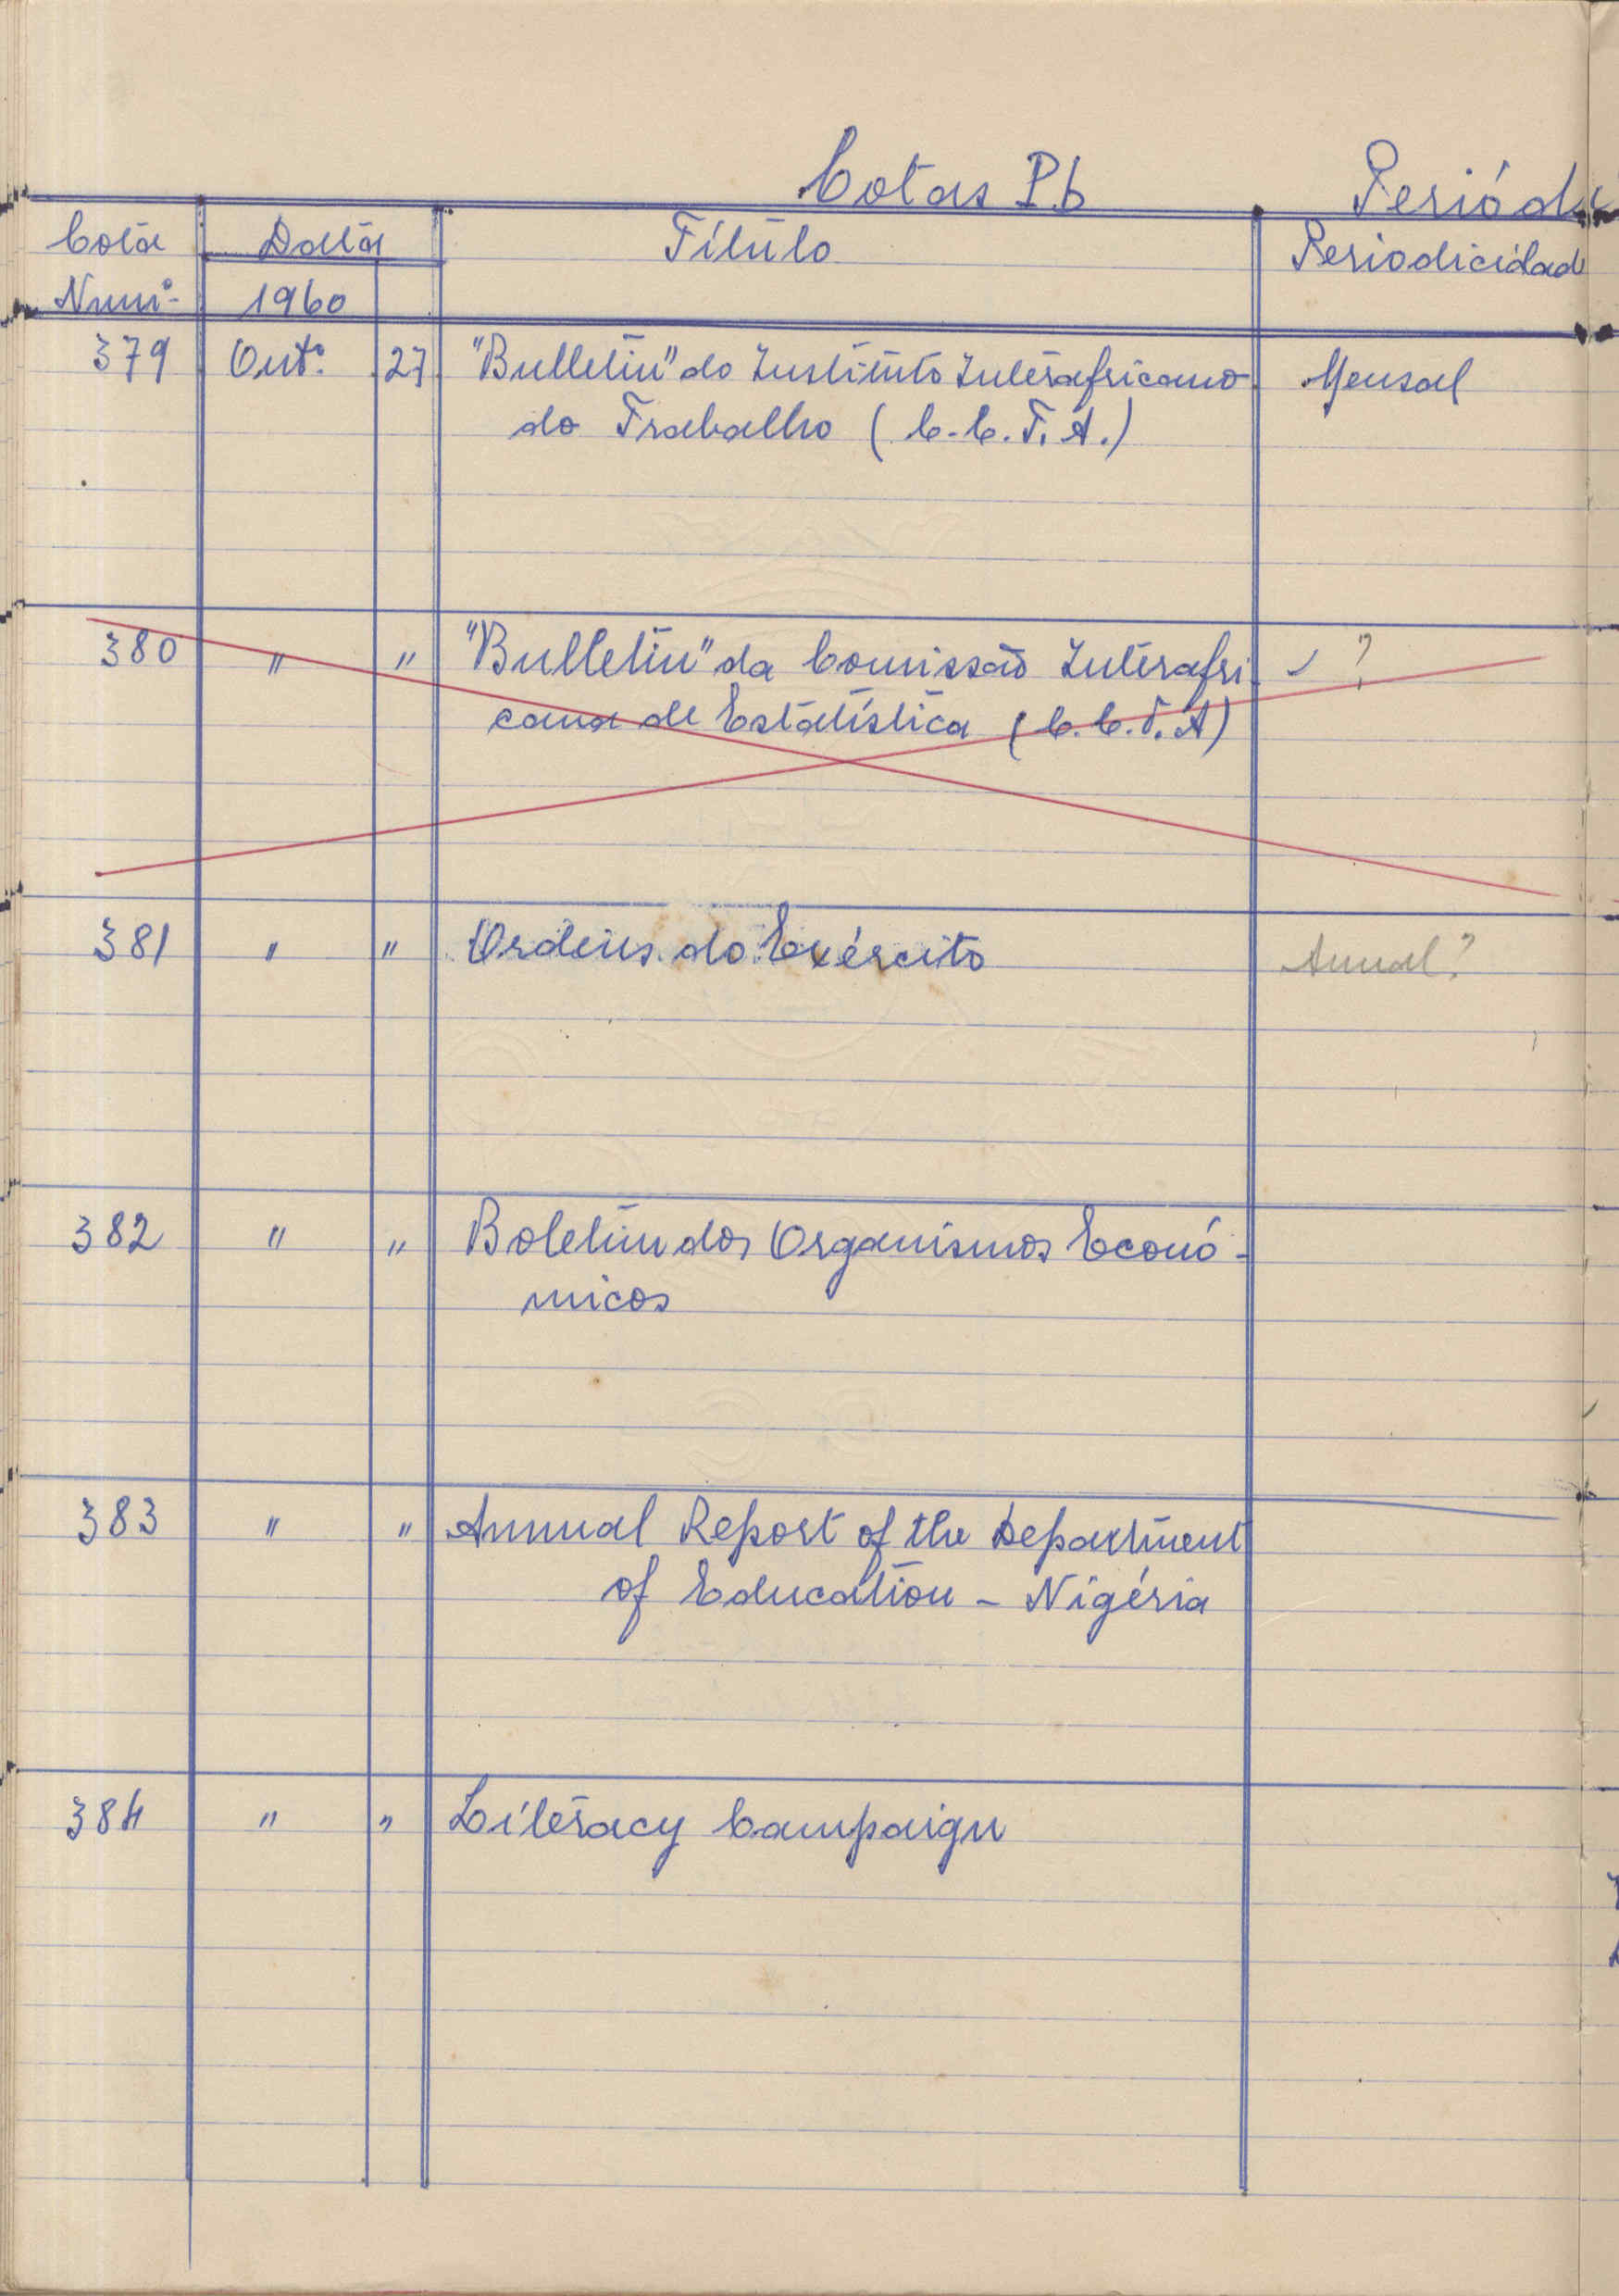 Cotas P.b Periódi
Cota Data Título Periodicidad
Numº 1960
379 Outº 27 "Bulletin" do Instituto Interafricano Mensal
do Trabalho (C.C.T.A.)
380 " " "Bulletin" da Comissão Interafri ?
cana de Estatística (C.C.T.A)
381 " " Ordens do Exército Anual?
382 " " Boletim dos Organismos Econó-
micos
383 " " Annual Report of the Department
of Education - Nigéria
384 " " Literacy Campaign